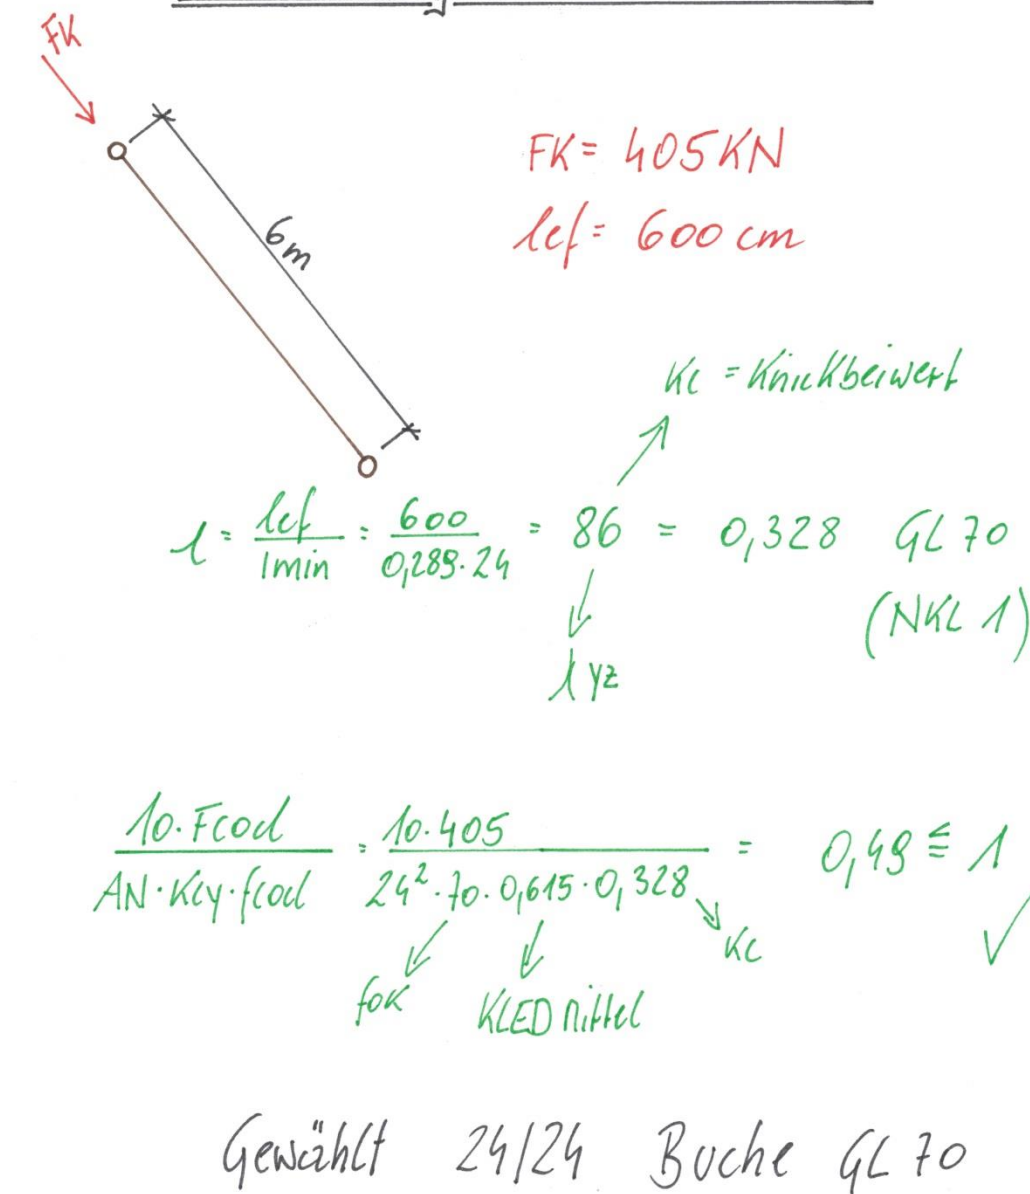 FK
6m
FK = 405 KN
lef = 600 cm
Kc = Knickbeiwert
λ = lef / imin = 600 / 0,289·24 = 86 = 0,328 GL 70
(NKL 1)
λ yz
10·Fcod / AN·Kcy·fcod = 10·405 / 24²·70·0,615·0,328 = 0,49 ≤ 1 ✓
fok
KLED Mittel
Kc
Gewählt 24/24 Buche GL 70